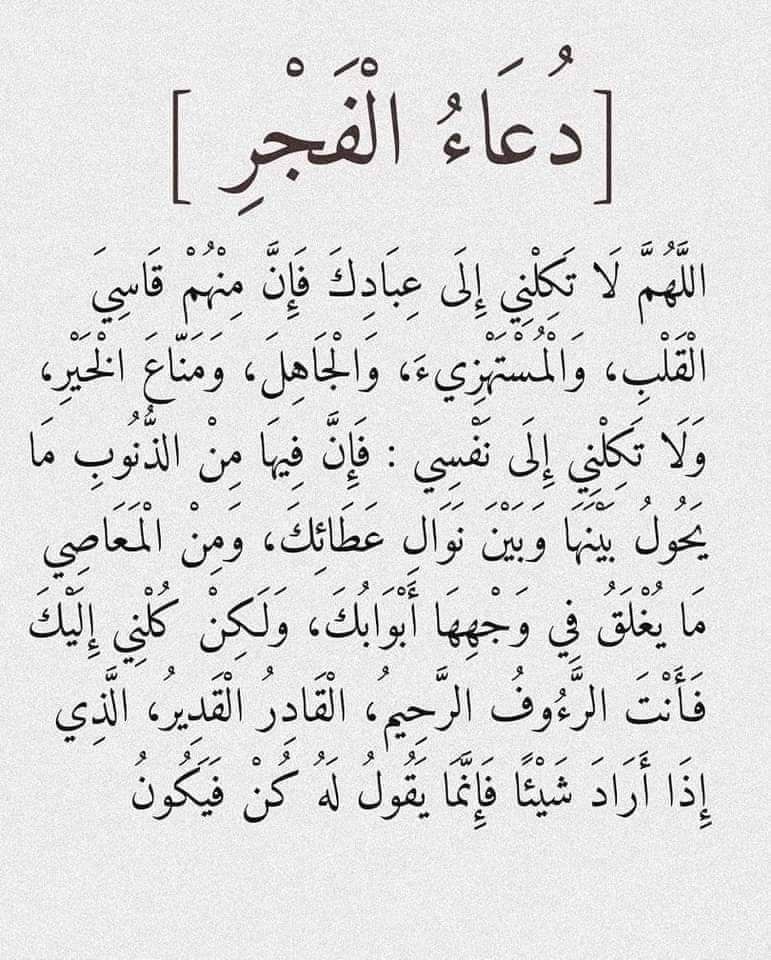 [دُعَاءُ الْفَجْرِ]
اللَّهُمَّ لَا تَكِلْنِي إِلَى عِبَادِكَ فَإِنَّ مِنْهُمْ قَاسِيَ
الْقَلْبِ، وَالْمُسْتَهْزِيءَ، وَالْجَاهِلَ، وَمَنَّاعَ الْخَيْرِ،
وَلَا تَكِلْنِي إِلَى نَفْسِي : فَإِنَّ فِيهَا مِنْ الذُّنُوبِ مَا
يَحُولُ بَيْنَهَا وَبَيْنَ نَوَالِ عَطَائِكَ، وَمِنْ الْمَعَاصِي
مَا يُغْلَقُ فِي وَجْهِهَا أَبْوَابُكَ، وَلَكِنْ كُلْنِي إِلَيْكَ
فَأَنْتَ الرَّءُوفُ الرَّحِيمُ، الْقَادِرُ الْقَدِيرُ، الَّذِي
إِذَا أَرَادَ شَيْئًا فَإِنَّمَا يَقُولُ لَهُ كُنْ فَيَكُونُ